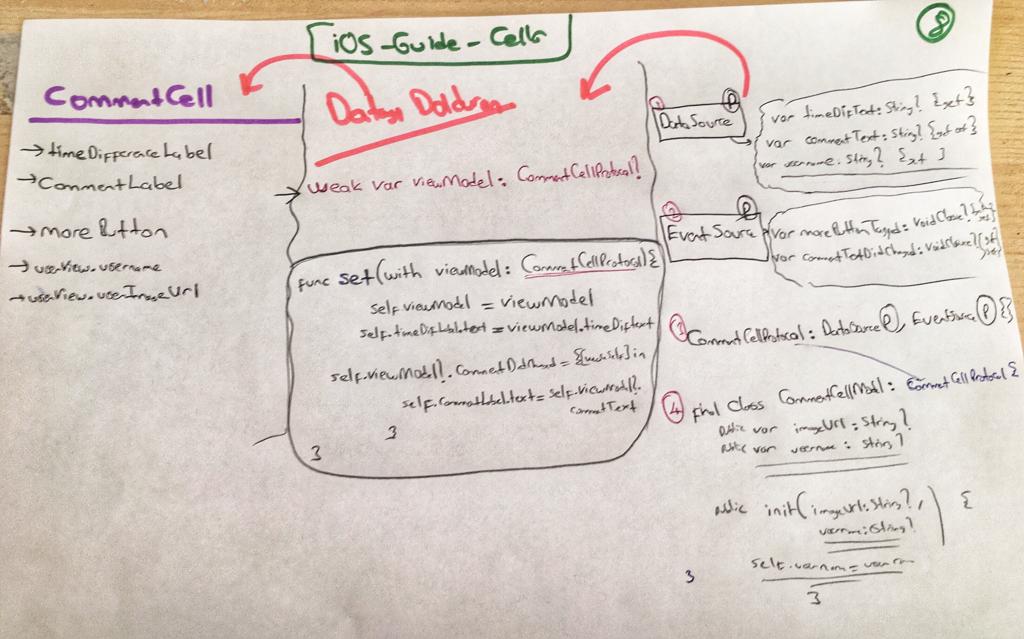 iOS-Guide-Cells
8
CommentCell
→ timeDifferenceLabel
→ CommentLabel
→ more Button
→ userView.username
→ userView.userImageUrl
Doldurma
weak var viewModel: CommentCellProtocol?
func set(with viewModel: CommentCellProtocol){
self.viewModel = viewModel
self.timeDifLabel.text = viewModel.timeDiftext
self.viewModel?.CommentDidChanged = {[weak self] in
self.commentLabel.text = self.viewModel?.
commentText
}
}
1 P
DataSource
var timeDifText: String? {get}
var commentText: String? {get set}
var username: String? {get }
2 P
EventSource
var moreButtonTapped: VoidClosure? {get set}
var commentTextDidChanged: VoidClosure? {get set}
3 CommentCellProtocol: DataSource P, EventSource P {}
4 final Class CommentCellModel: CommentCellProtocol {
public var imageUrl: String?
public var username: String?
public init(imageUrl: String?,
username: String?
) {
self.username = username
}
}